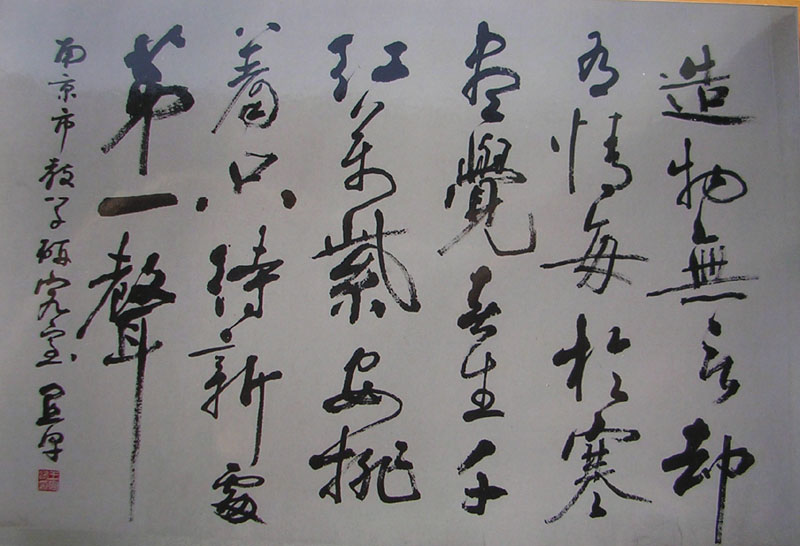 造物無言却
有情每於寒
盡覺春生千
紅萬紫安排
着只待新雷
第一聲
南京市教学研究室